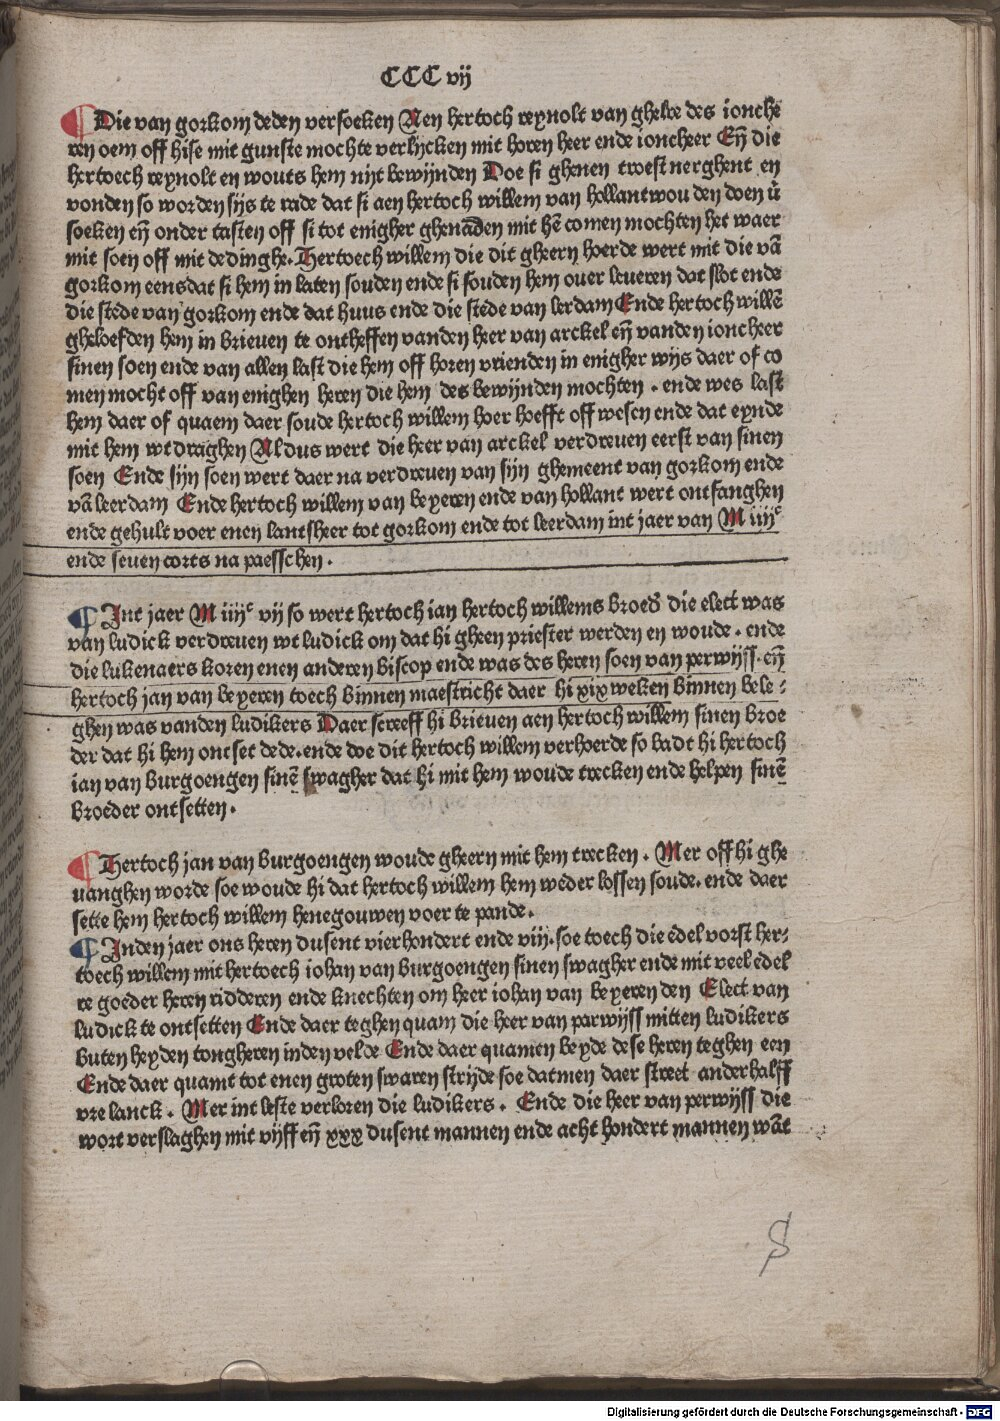 CCC vij
Die van gorkom deden versoeken Aen hertoch reynolt van ghelre des ionche
ren oem off hise mit gunste mochte verlijcken mit horen heer ende ioncheer Eñ die
hertoech reynolt en wouts hem nijt bewijnden Doe si ghenen troest nerghent en
vonden so worden sijs te rade dat si aen hertoch willem van hollant wou den doen v̄
soeken eñ onder tasten off si tot enigher ghenaden mit hē comen mochten het waer
mit soen off mit dedinghe. Hertoech willem die dit gheern hoerde wert mit die vā
gorkom eens dat si hem in laten souden ende si souden hem ouer leueren dat slot ende
die stede van gorkom ende dat huus ende die stede van lerdam Ende hertoch willē
gheloefden hem in brieuen te ontheffen vanden heer van arckel eñ vanden ioncheer
sinen soen ende van allen last die hem off horen vrienden in enigher wijs daer of co
men mocht off van enighen heren die hem des bewijnden mochten . ende wes last
hem daer of quaem daer soude hertoch willem hoer hoefft off wesen ende dat eynde
mit hem wt draghen Aldus wert die heer van arckel verdreuen eerst van sinen
soen Ende sijn soen wert daer na verdreuen van sijn ghemeent van gorkom ende
vā leerdam Ende hertoch willem van beyeren ende van hollant wert ontfanghen
ende gehult voer enen lantsheer tot gorkom ende tot leerdam int jaer van M iiijᶜ
ende seuen corts na paesschen.
Int jaer M iiijᶜ vij so wert hertoch ian hertoch willems broed̛ die elect was
van ludick verdreuen wt ludick om dat hi gheen priester werden en woude . ende
die lukenaers koren enen anderen biscop ende was des heren soen van perwijss. eñ
hertoch jan van beyeren toech binnen maestricht daer hi xix weken binnen bele-
ghen was vanden ludikers Daer screeff hi brieuen aen hertoch willem sinen broe
der dat hi hem ontset dede. ende doe dit hertoch willem verhoerde so badt hi hertoch
ian van burgoengen sinē swagher dat hi mit hem woude trecken ende helpen sinē
broeder ontsetten.
Hertoch jan van burgoengen woude gheern mit hem trecken . Mer off hi ghe
uanghen worde soe woude hi dat hertoch willem hem weder lossen soude. ende daer
sette hem hertoch willem henegouwen voer te pande.
Inden jaer ons heren dusent vierhondert ende viij. soe toech die edel vorst her-
toech willem mit hertoech iohan van burgoengen sinen swagher ende mit veel edel
re goeder heren ridderen ende knechten om heer iohan van beyeren den Elect van
ludick te ontsetten Ende daer teghen quam die heer van parwijss mitten ludikers
buten heyden tongheren inden velde Ende daer quamen beyde dese heren teghen een
Ende daer quamt tot enen groten swaren strijde soe datmen daer street anderhalff
vre lanck . Mer int leste verloren die ludikers . Ende die heer van perwijss die
wort verslaghen mit vijff eñ xxx dusent mannen ende acht hondert mannen wāt
Digitalisierung gefördert durch die Deutsche Forschungsgemeinschaft - DFG